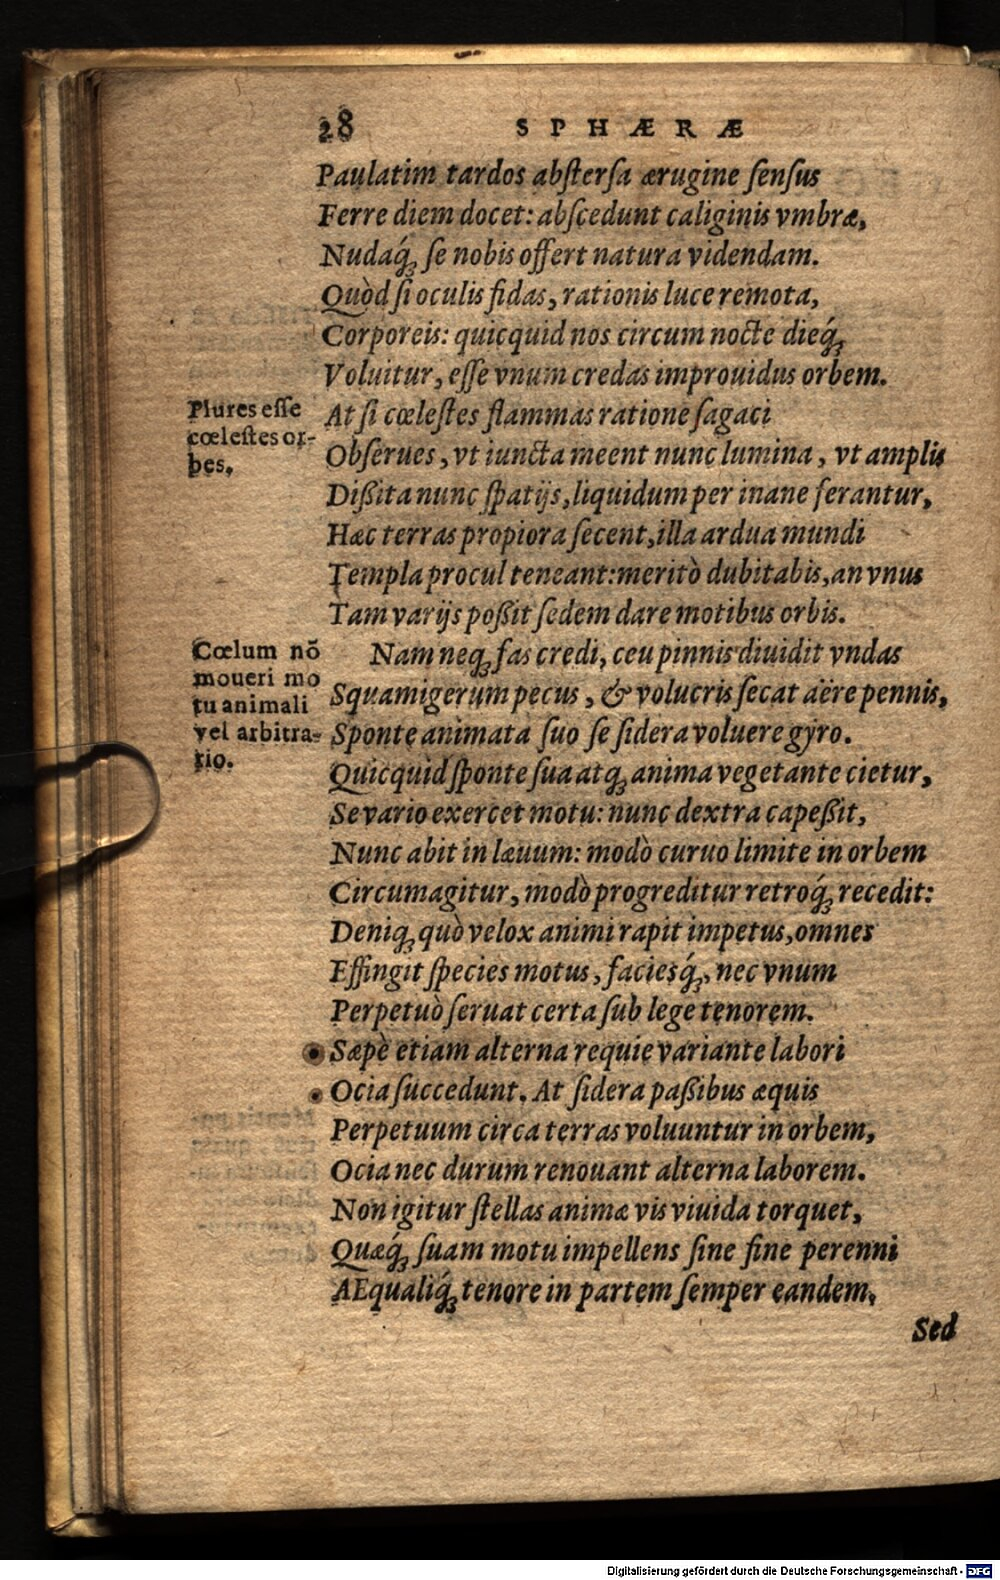 28 SPHÆRÆ
Paulatim tardos abſterſa ærugine ſenſus
Ferre diem docet: abſcedunt caliginis vmbræ,
Nudaq́; ſe nobis offert natura videndam.
Quòd ſi oculis fidas, rationis luce remota,
Corporeis: quicquid nos circum nocte dieq́;
Voluitur, eſſe vnum credas improuidus orbem.
Plures eſſe
cœleſtes or-
bes.
At ſi cœleſtes flammas ratione ſagaci
Obſerues, vt iuncta meent nunc lumina, vt amplis
Dißita nunc ſpatijs, liquidum per inane ferantur,
Hæc terras propiora ſecent, illa ardua mundi
Templa procul teneant: meritò dubitabis, an vnus
Tam varijs poßit ſedem dare motibus orbis.
Cœlum nō
moueri mo
tu animali
vel arbitra-
rio.
Nam neq; fas credi, ceu pinnis diuidit vndas
Squamigerum pecus, & volucris ſecat aëre pennis,
Sponte animata ſuo ſe ſidera voluere gyro.
Quicquid ſponte ſua atq; anima vegetante cietur,
Se vario exercet motu: nunc dextra capeßit,
Nunc abit in læuum: modò curuo limite in orbem
Circumagitur, modò progreditur retroq́; recedit:
Deniq; quò velox animi rapit impetus, omnes
Effingit ſpecies motus, facieſq́;, nec vnum
Perpetuò ſeruat certa ſub lege tenorem.
Sæpè etiam alterna requie variante labori
Ocia ſuccedunt. At ſidera paßibus æquis
Perpetuum circa terras voluuntur in orbem,
Ocia nec durum renouant alterna laborem.
Non igitur ſtellas animæ vis viuida torquet,
Quæq́; ſuam motu impellens ſine fine perenni
AEqualiq́; tenore in partem ſemper eandem,
Sed
Digitalisierung gefördert durch die Deutsche Forschungsgemeinschaft - DFG